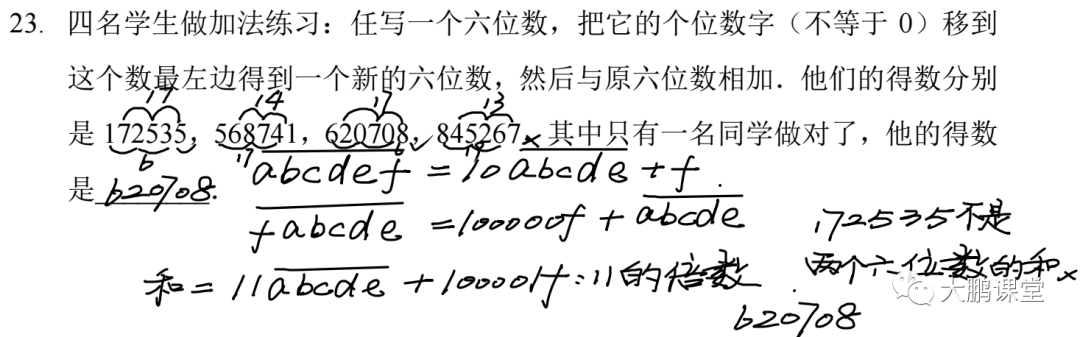 23. 四名学生做加法练习：任写一个六位数，把它的个位数字（不等于 0）移到
这个数最左边得到一个新的六位数，然后与原六位数相加．他们的得数分别
17 14 17 13
是 172535，568741，620708，845267，其中只有一名同学做对了，他的得数
6 17 6 19
是 620708.
abcdef = 10abcde + f.
fabcde = 100000f + abcde
172535不是
和 = 11abcde + 100001f：11的倍数
两个六位数的和×
620708
大鹏课堂